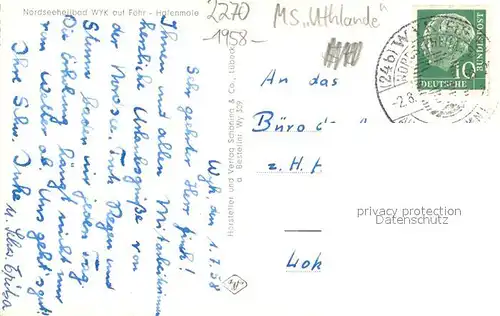 Nordseeheilbad WYK auf Föhr - Hafenmole
2270
-1958-
MS „Uthlande"
Wyk, den 1.7.58
Sehr geehrter Herr
Ihnen und allen Mitarbeiterinnen
herzliche Urlaubsgrüße von
der Nordsee. Trotz Regen und
Sturm baden wir jeden Tag.
Die Erholung hängt nicht nur
vom Wetter ab. Uns geht's gut!
Ihre Schw.
u. Schw. Erika
Hersteller und Verlag Schöning & Co., Lübeck
Bestellnr. Wy 369
An das
Büro d
z. H.
Lok
(24b) WYK
-2.8.
DEUTSCHE
BUNDESPOST
10
privacy protection
Datenschutz